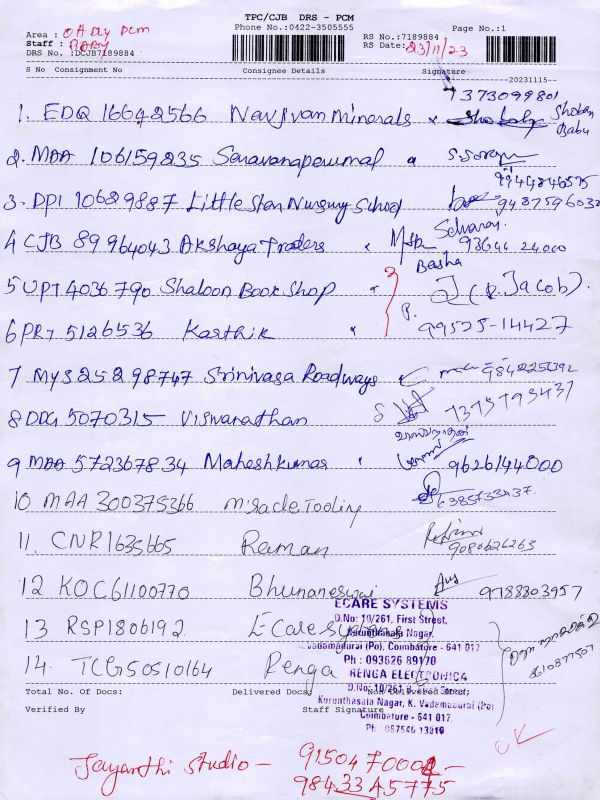 TPC/CJB DRS - PCM
Area : OH Dly PCM
Phone No.:0422-3505555
RS No.:7189884
Page No.:1
Staff : BABY
RS Date: 23/11/23
DRS No. :DCJB7189884
S No Consignment No Consignee Details Signature
20231115--
7373099801
1. EDQ 16642566 Navjivan Minerals Shoban Babu
2. MAA 106159235 Saravanaperumal
9944846575
3. DPI 10629887 Little Star Nursery School 9487596032
4 CJB 89964043 Akshaya Traders 93644 24000
Basha
5 UPT 4036790 Shaloon Book Shop (P. Jacob).
6 PRT 5126536 Karthik 99525-14427
7 MYS 25298747 Srinivasa Roadways
8 DDG 5070315 Viswanathan 7373793437
9 MAA 572367834 Maheshkumar 9626144000
10 MAA 300375366 Miracle Tooling 6385733437
11. CNR 1635665 Raman
9080626263
12 KOC 61100770 Bhuvaneswai 9788803957
ECARE SYSTEMS
D.No: 10/261, First Street,
13 RSP 1806192 E-Care Systems
Kurunthasala Nagar,
K.Vadamadurai (Po), Coimbatore - 641 017
Ph : 093626 89170
14. TCG 50510164 Renga
RENGA ELECTRONICA
Total No. Of Docs: Delivered Docs: Non Delivered Docs:
D.No: 10/261, First Street,
Kurunthasala Nagar, K. Vadamadurai (Po)
Verified By Staff Signature
Coimbatore - 641 017.
Ph - 087546 13810
OK
Jayanthi Studio -
98433 45775